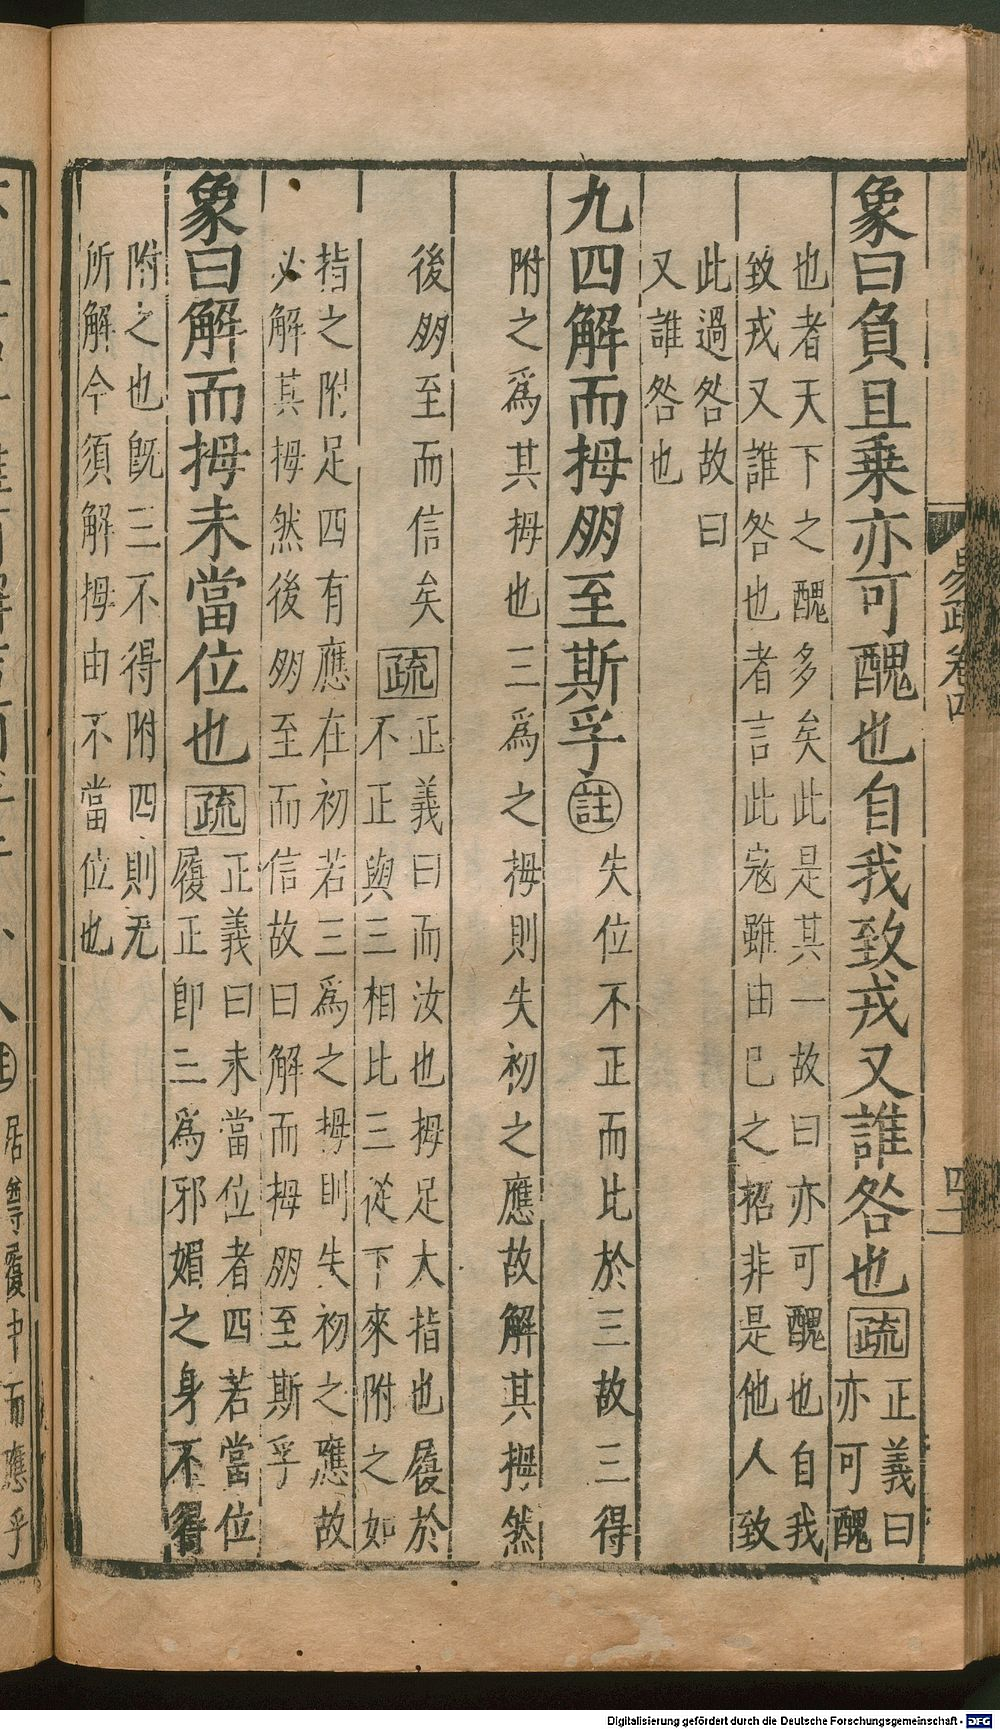 象曰負且乗亦可醜也自我致戎又誰咎也疏正義曰
亦可醜
也者天下之醜多矣此是其一故曰亦可醜也自我
致戎又誰咎也者言此寇雖由已之招非是他人致
此過咎故曰
又誰咎也
九四解而拇朋至斯孚註失位不正而比於三故三得
附之爲其拇也三爲之拇則失初之應故解其拇然
後朋至而信矣疏正義曰而汝也拇足大指也履於
不正與三相比三從下來附之如
指之附足四有應在初若三爲之拇則失初之應故
必解其拇然後朋至而信故曰解而拇朋至斯孚
象曰解而拇未當位也疏正義曰未當位者四若當位
履正即三爲邪媚之身不得
附之也既三不得附四則无
所解今須解拇由不當位也
易疏卷四
四二
註居尊履中而應乎
Digitalisierung gefördert durch die Deutsche Forschungsgemeinschaft - DFG